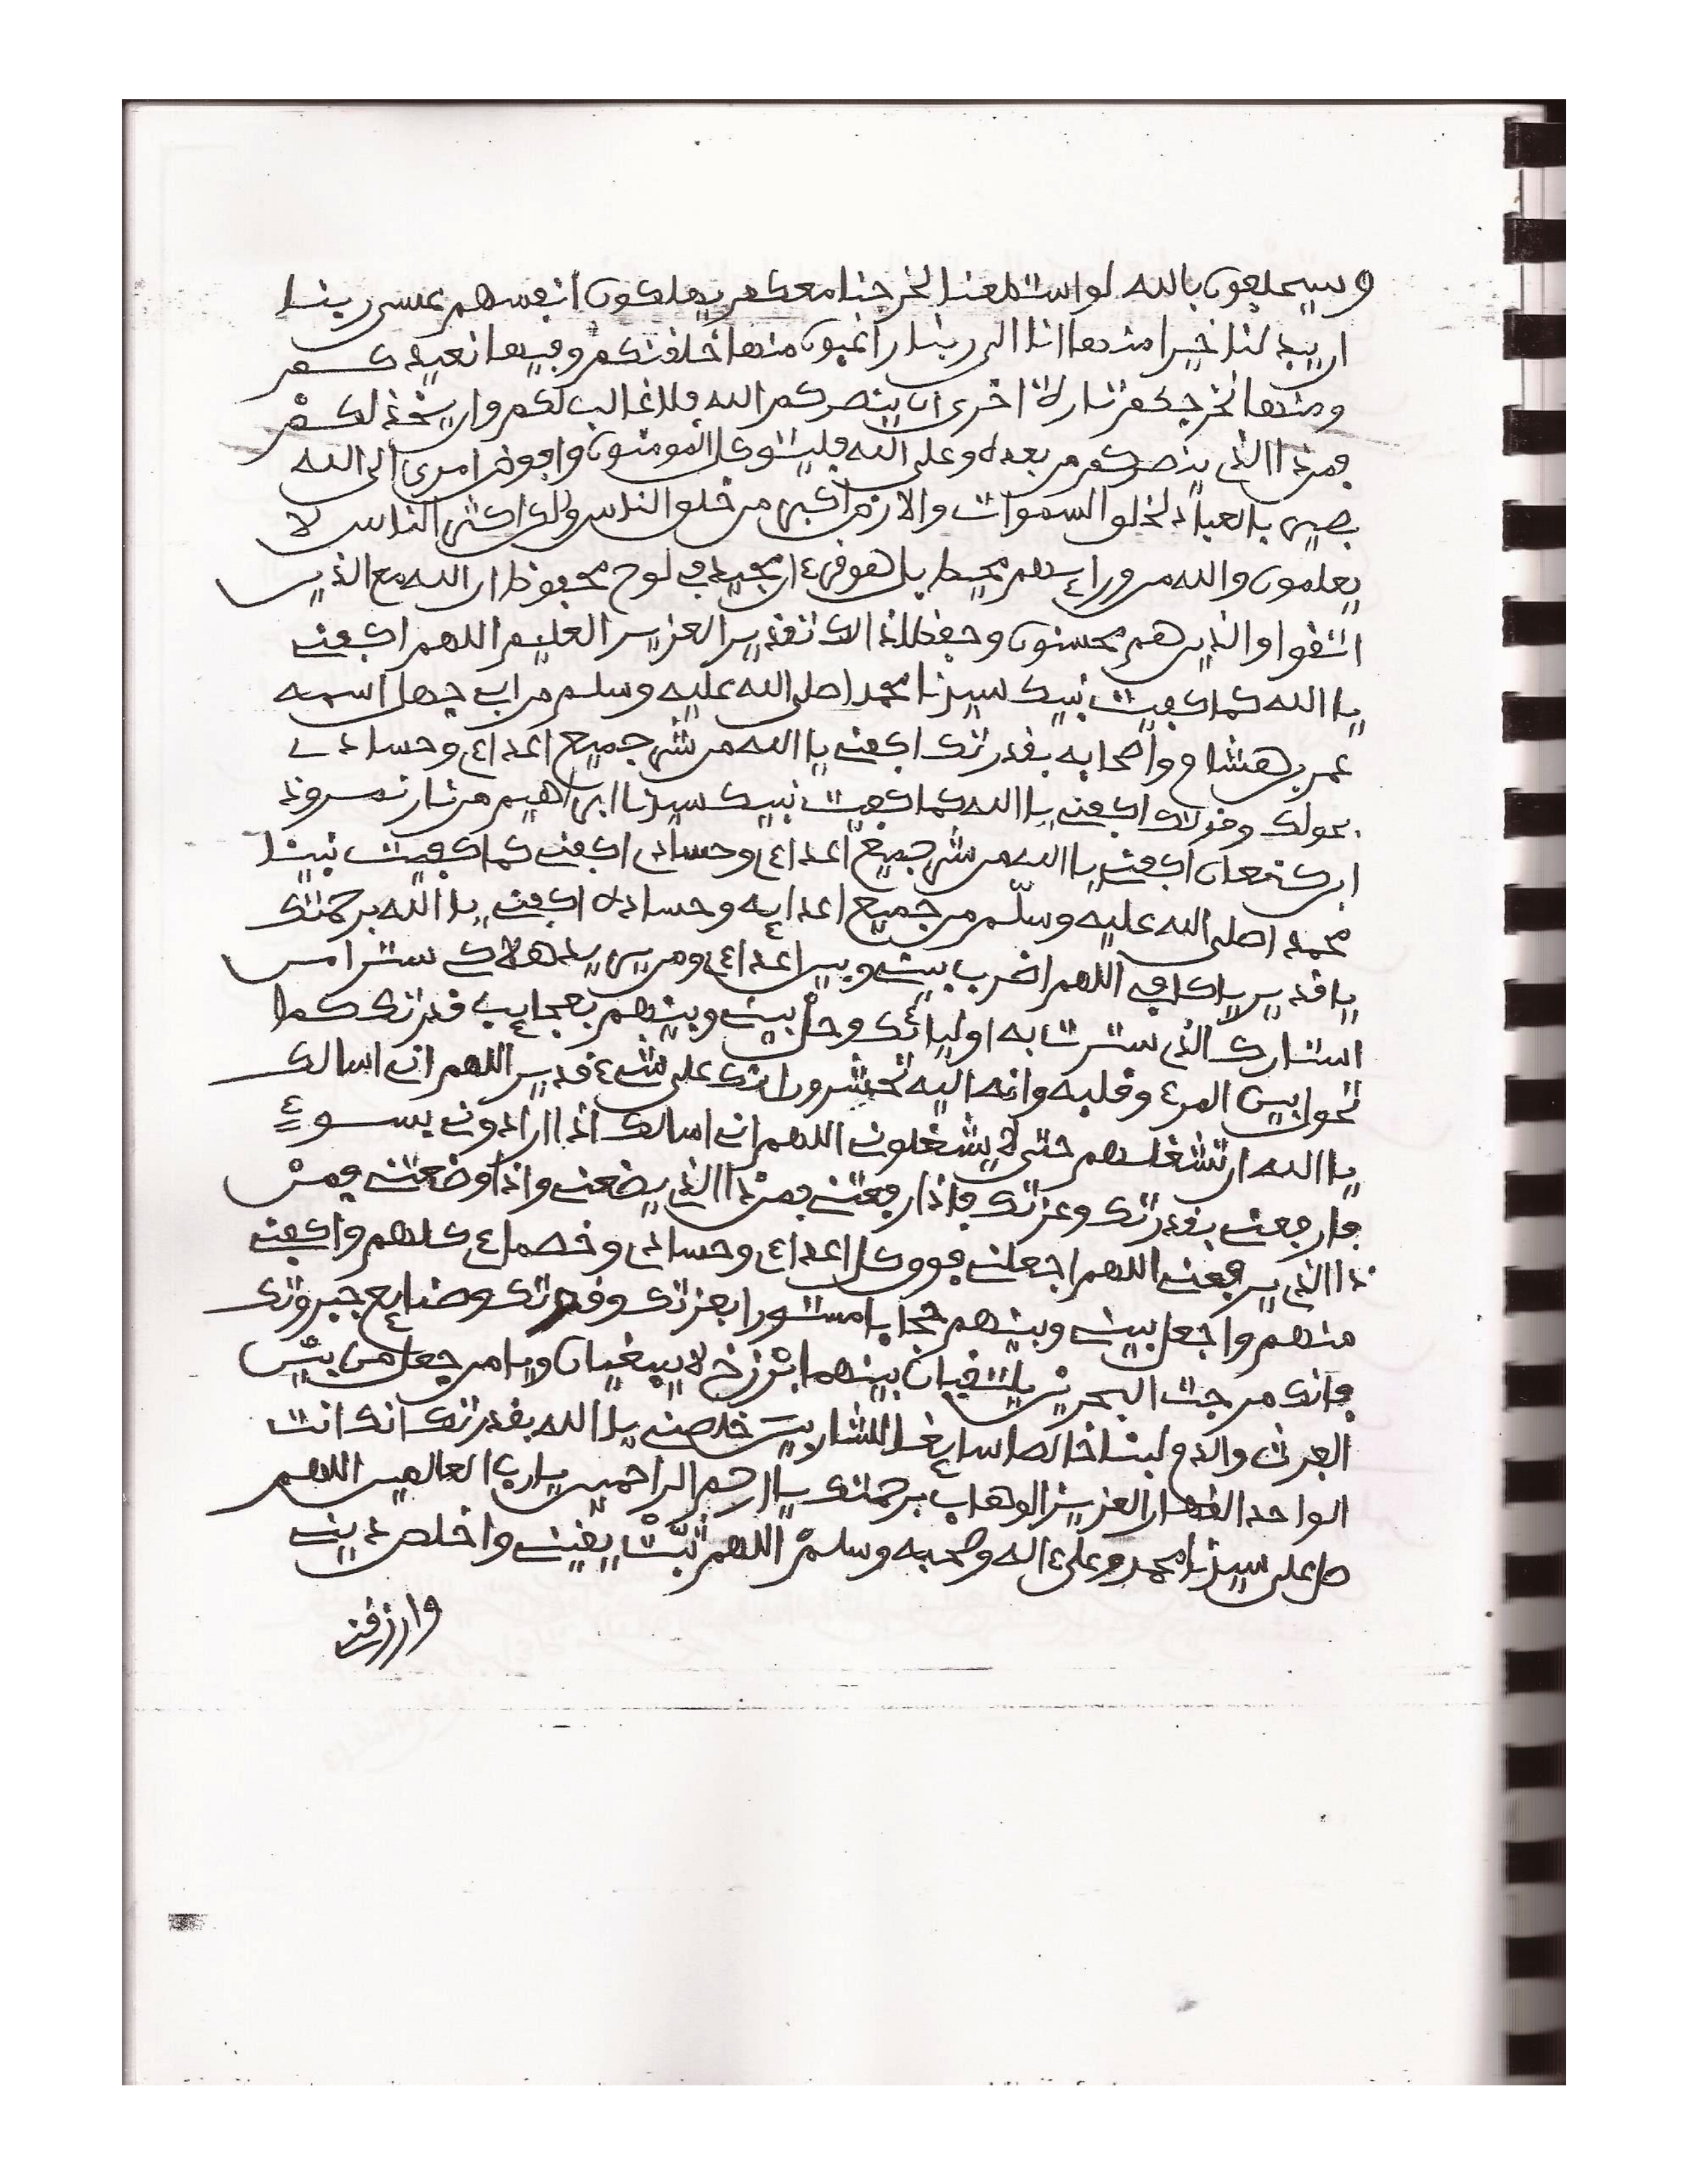 وسيحلفون بالله لو استطعنا لخرجنا معكم يهلكون انفسهم عسى ربنا
ان يبدلنا خيرا منها انا الى ربنا راغبون منها خلقنكم وفيها نعيدكم
ومنها نخرجكم تارة اخرى ان ينصركم الله فلا غالب لكم وان يخذلكم
فمن ذا الذي ينصركم من بعده وعلى الله فليتوكل المومنون وافوض امري الى الله
بصير بالعباد لخلق السموات والارض اكبر من خلق الناس ولكن اكثر الناس لا
يعلمون والله من ورايهم محيط بل هو قرءان مجيد في لوح محفوظ ان الله مع الذين
اتقوا والذين هم محسنون وحفظا ذالك تقدير العزيز العليم اللهم اكفني
يا الله كما كفيت نبيك سيدنا محمدا صلى الله عليه وسلم من ابي جهل اسمه
عمر بن هشام واصحابه بقدرتك اكفني يا الله من شر جميع اعداءي وحسادي
بحولك وقوتك اكفني يا الله كما كفيت نبيك سيدنا ابراهيم من نار نمرود
ابن كنعان اكفني يا الله من شر جميع اعداءي وحسادي اكفني كما كفيت نبينا
محمدا صلى الله عليه وسلم من جميع اعدايه وحساده اكفني يا الله برحمتك
يا قدير يا كافي اللهم اضرب بيني وبين اعداءي ومن يريد هلاكي سترا من
استارك الذي سترت به اوليائك وحل بيني وبينهم بعجايب قدرتك كما
تحول بين المرء وقلبه وانه اليه تحشرون انك على شيء قدير اللهم اني اسالك
يا الله ان تشغلهم حتى لا يشغلوني اللهم اني اسالك اذا ارادوني بسوء
فارفعني بقدرتك وعزتك فاذا رفعتني فمن ذا الذي يضعني واذا وضعتني فمن
ذا الذي يرفعني اللهم اجعلني فوق كل اعداءي وحسادي وخصماءي كلهم واكفني
منهم واجعل بيني وبينهم حجابا مستورا بعزتك وقدرتك وصنايع جبروتك
فانك مرجت البحرين يلتقيان بينهما برزخ لا يبغيان ويا من جعل من بين
الفرث والدم لبنا خالصا سايغا للشاربين خلصني يا الله بقدرتك انك انت
الواحد القهار العزيز الوهاب برحمتك يا ارحم الراحمين يا رب العالمين اللهم
صل على سيدنا محمد وعلى ءاله وصحبه وسلم اللهم ثبت يقيني واخلص ديني
وارزقني